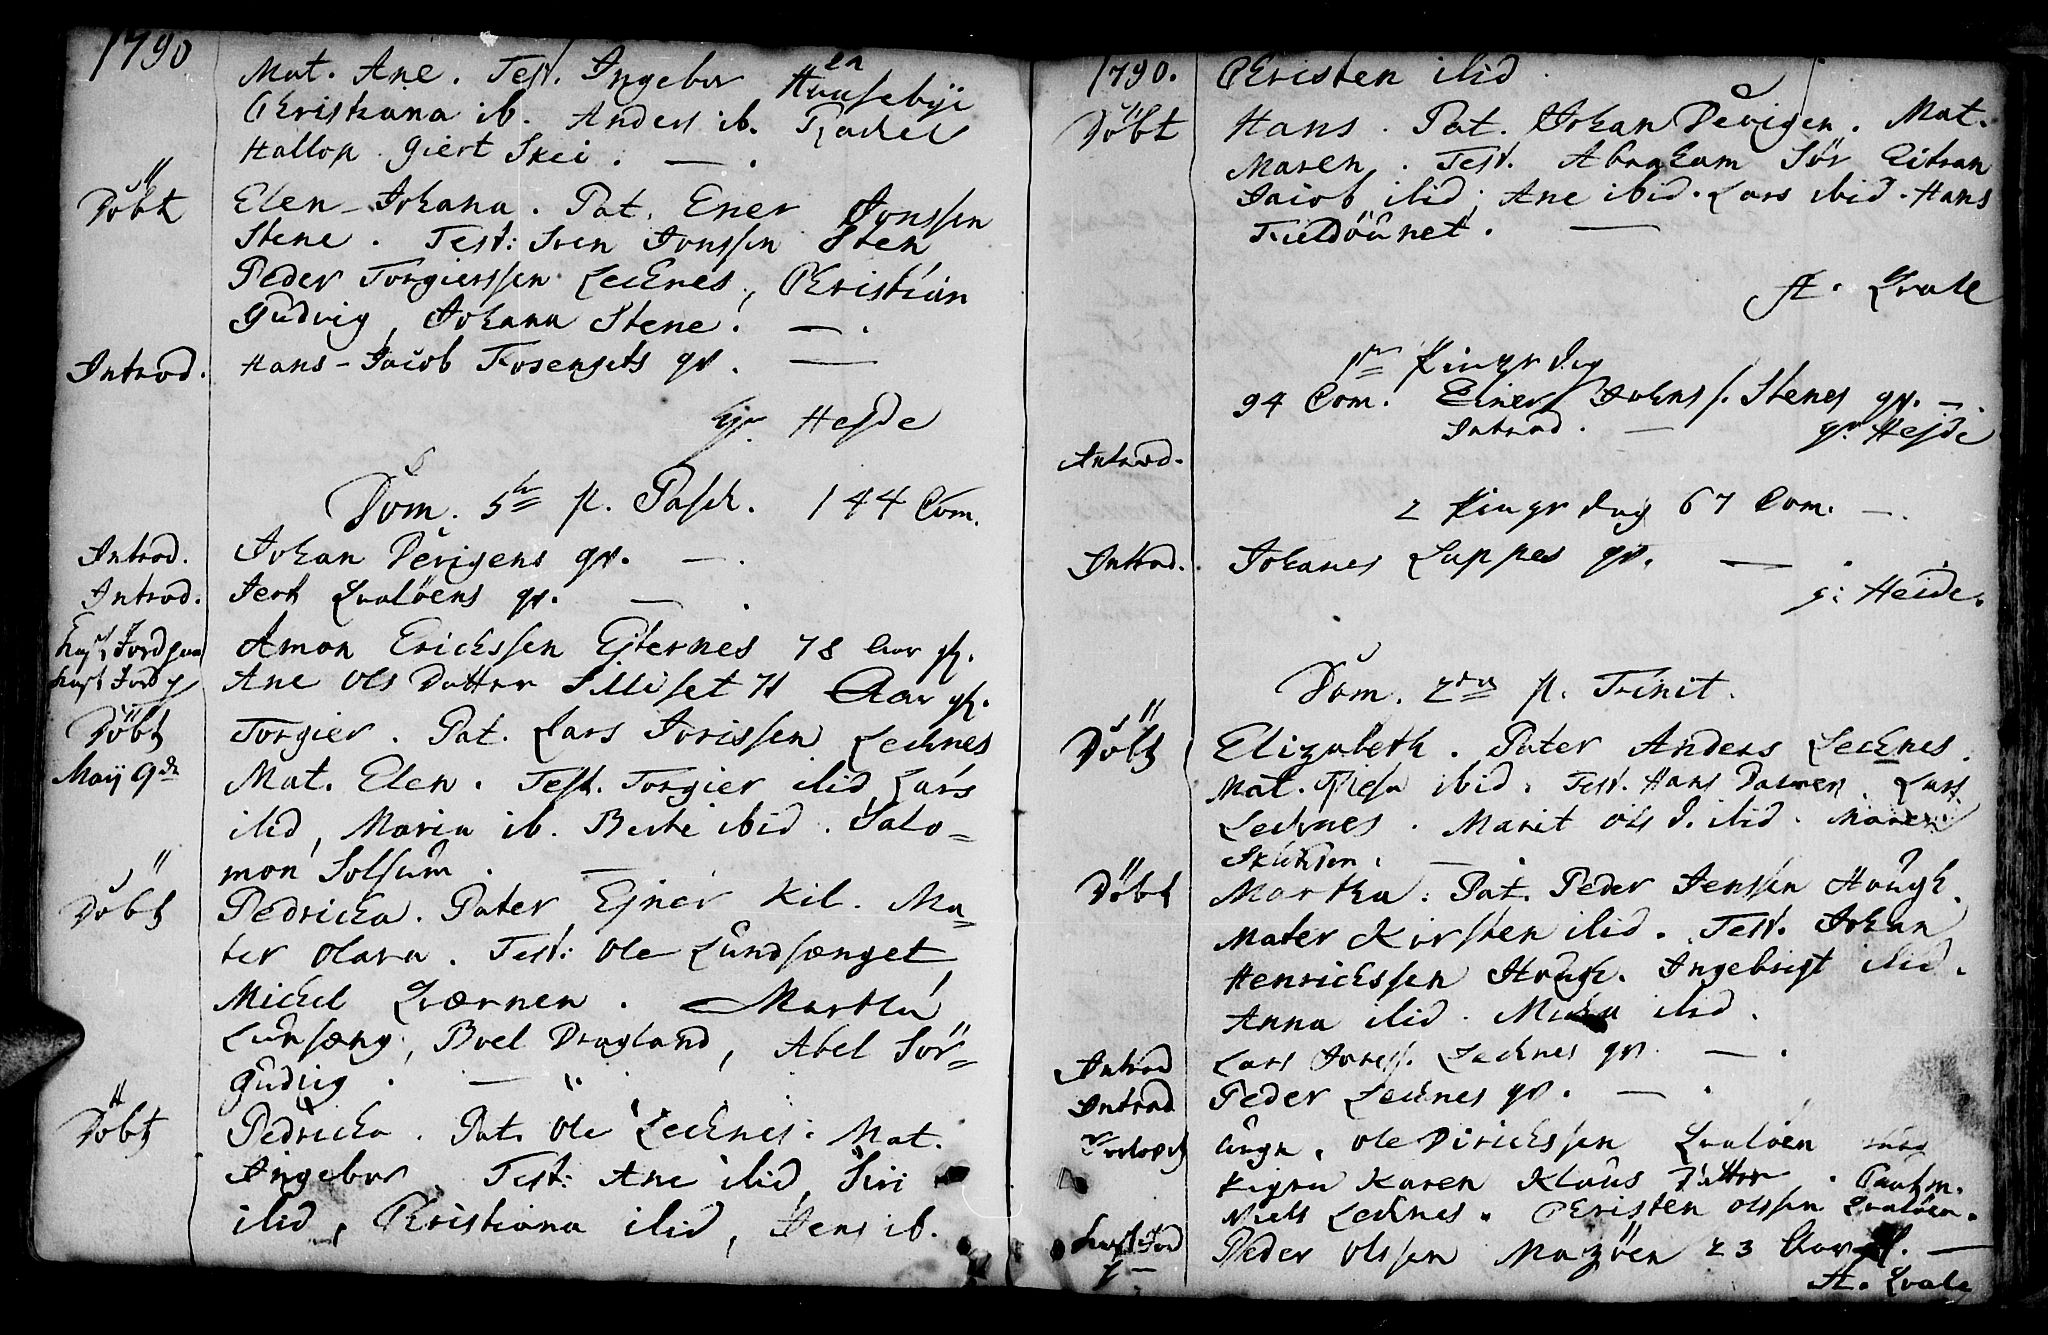 1790
Mat. Ane. Test. Ingebor Huusebÿe
Christiana ib. Anders ib. Rachel
Hallop Giert Skei. — .
Döbt Elen-Johana. Pat. Ener Jonssen
Stene. Test: Sven Jonssen Sten
Peder Torgierssen Lecknes, Christian
Gudvig, Johana Stene. — .
Introd. Hans-Jacob Fosengets qv. —
Hejde
Dom. 5te p. Pasch. 144 Com.
Introd. Johan Devigens qv. — .
Introd. Jert Qvalöens qv. — .
Amon Erickssen Ejternes 78 Aar gl.
Ane Ols Datter Silliset 71 Aar gl.
Döbt Torgier. Pat. Lars Jorissen Lecknes
Maij 9de Mat. Elen. Test. Torgier ibid, Lars
ibid, Maria ib. Berte ibid. Salo=
mon Solsum. —
Döbt Pedricka. Pater Ejner Kil. Ma=
ter Olava. Test: Ole Lundsænget
Mickel Qværnen. Martha
Lunsæng, Boel Dragland, Abel Sör=
Gudvig. —
Döbt Pedricka. Pat. Ole Lecknes. Mat.
Ingebor. Test: Ane ibid, Siri
ibid, Christiana ibid, Jens ib.
1790. Christen ibid
Döbt Hans. Pat. Johan Devigen. Mat.
Maren. Test. Abraham Sör Eitran
Jacob ibid; Ane ibid. Lars ibid. Hans
Fieldöunet. —
St. Qvale
1ste Pingse dag
94 Com. Einer Johns s. Stenes qv. — .
Introd. — Hejde
Introd.
2 Pingse dag 67 Com. — .
Introd. Johanes Lappes qv. — .
Heide.
Dom. 2da p. Trinit.
Döbt Elizabeth. Pater Anders Lecknes.
Mat. ibid. Test. Hans Lars
Lecknes. Marit Ols D. ibid. Maren
Döbt Martha: Pat. Peder Jenssen Hough.
Mater Kirsten ibid. Test. Johan
Henrickssen Hough. Ingebrigt ibid.
Anna ibid. ibid.
Introd Lars Joress. Lecknes qv. — .
Introd Peder Lecknes qv. — .
Ungk. Ole Dirickssen Qvaløen
Pigen Karen Klaus Datter.
Niels Lecknes. Christen Olssen Qvaløen.
Peder Olssen 23 Aar gl. —
St. Qvale